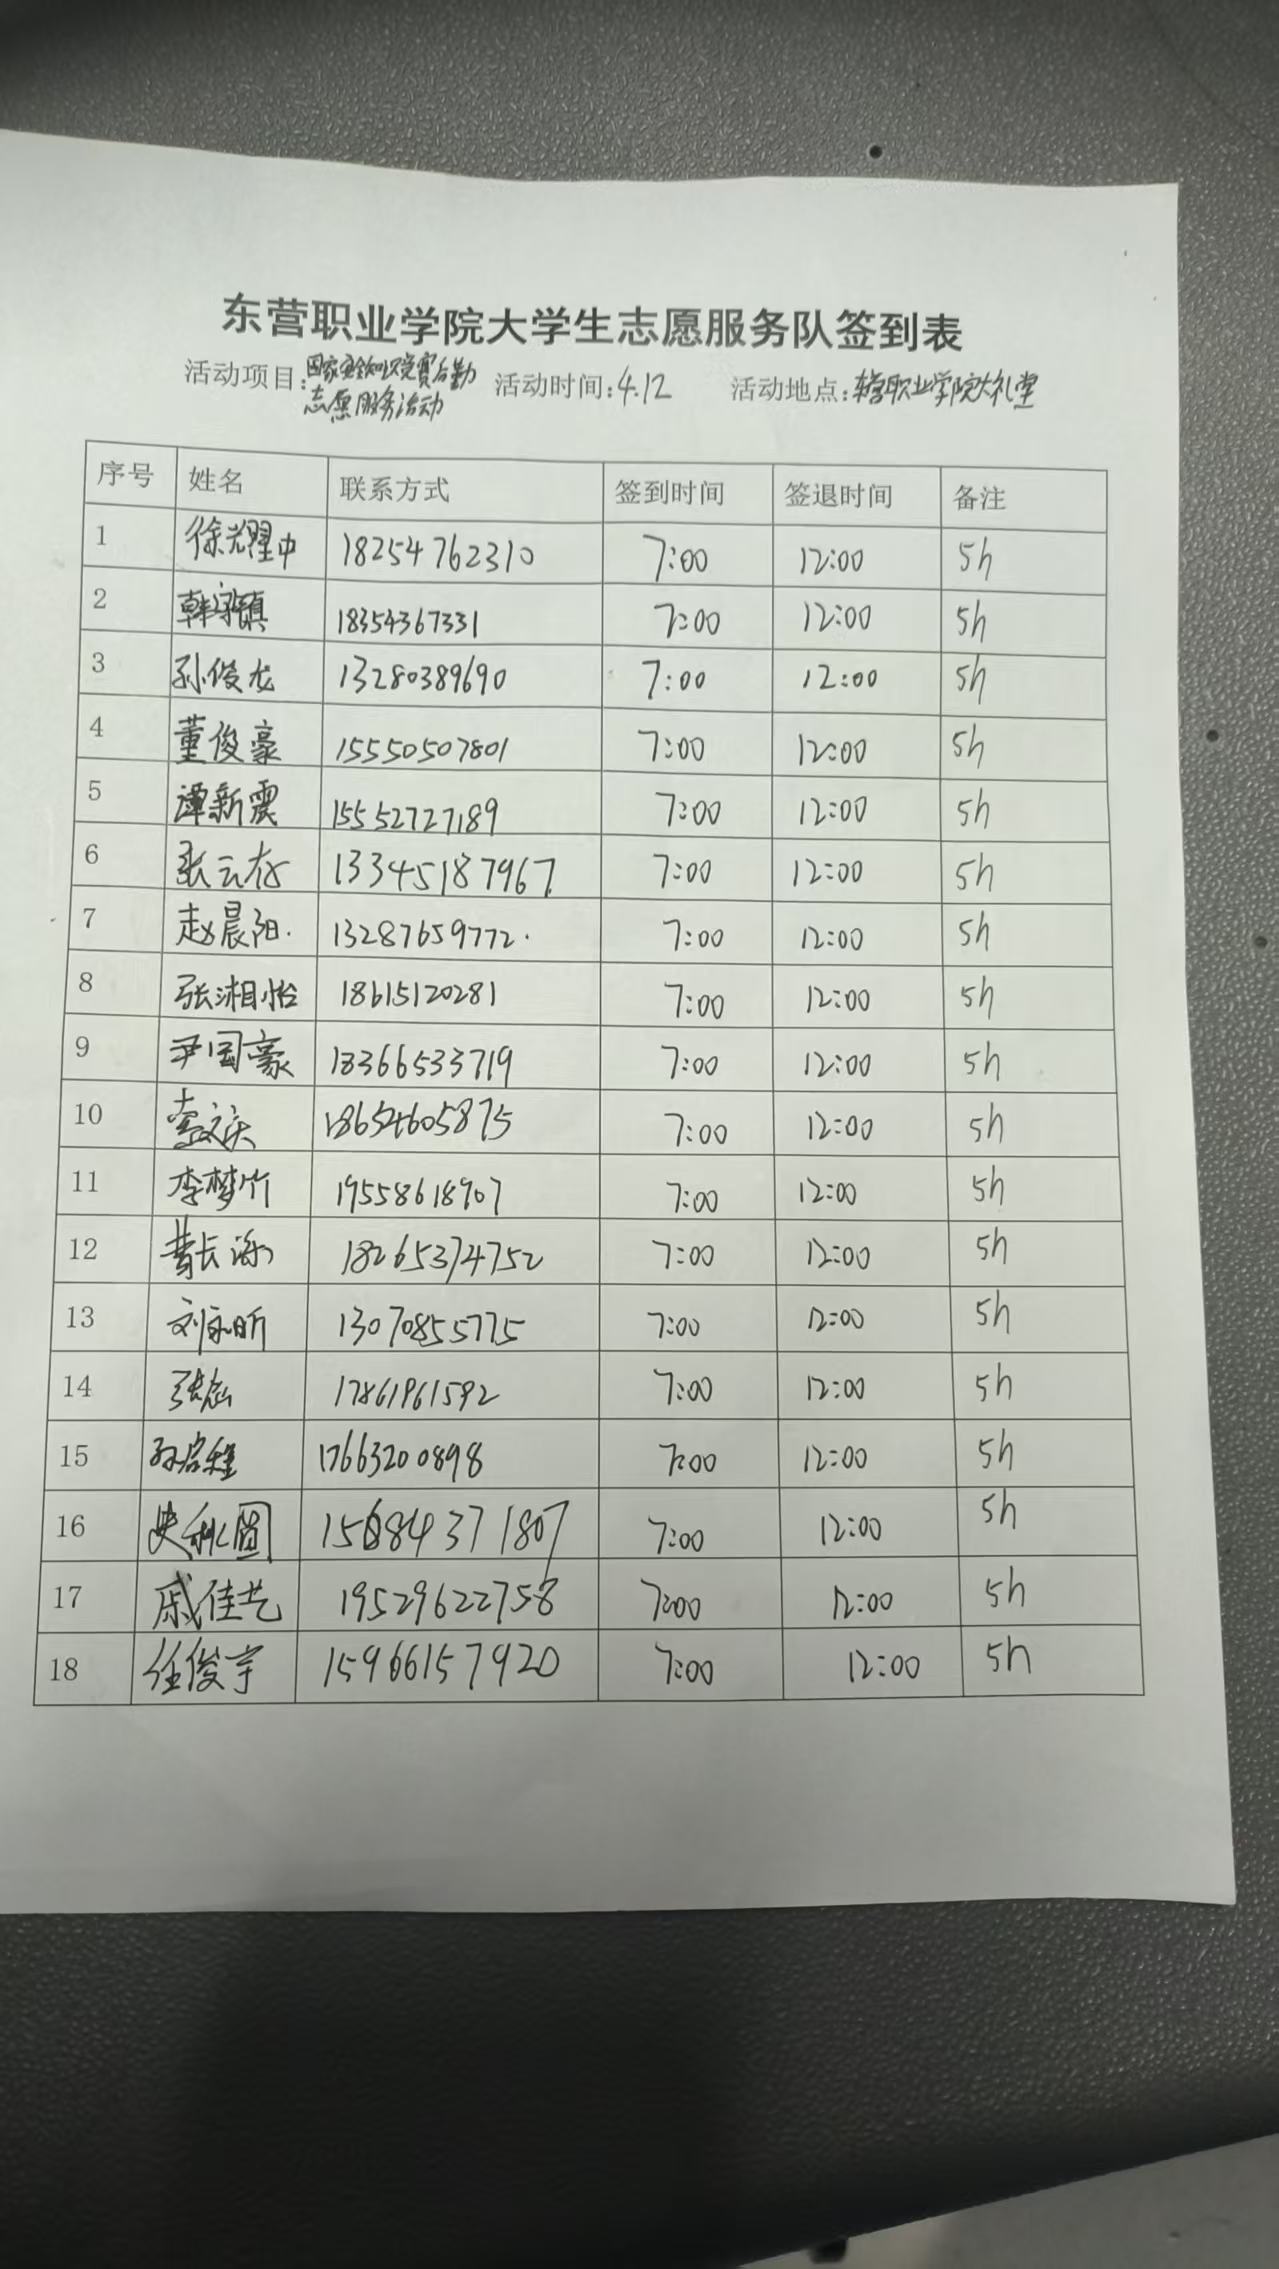 东营职业学院大学生志愿服务队签到表
活动项目:国家安全知识竞赛后勤 活动时间:4.12 活动地点:东营职业学院大礼堂
志愿服务活动
序号 姓名 联系方式 签到时间 签退时间 备注
1 徐耀中 18254762310 7:00 12:00 5h
2 韩宇镇 18354367331 7:00 12:00 5h
3 孙俊龙 13280389690 7:00 12:00 5h
4 董俊豪 15550507801 7:00 12:00 5h
5 谭新震 15552727189 7:00 12:00 5h
6 张云存 13345187967 7:00 12:00 5h
7 赵晨阳. 13287659772. 7:00 12:00 5h
8 张湘怡 18615120281 7:00 12:00 5h
9 尹国豪 18366533719 7:00 12:00 5h
10 18654605875 7:00 12:00 5h
11 李梦竹 19558618907 7:00 12:00 5h
12 18265374752 7:00 12:00 5h
13 刘永昕 13070855775 7:00 12:00 5h
14 17861961592 7:00 12:00 5h
15 孙启程 17663200898 7:00 12:00 5h
16 7:00 12:00 5h
17 戚佳艺 19529622758 7:00 12:00 5h
18 任俊宇 15966157920 7:00 12:00 5h